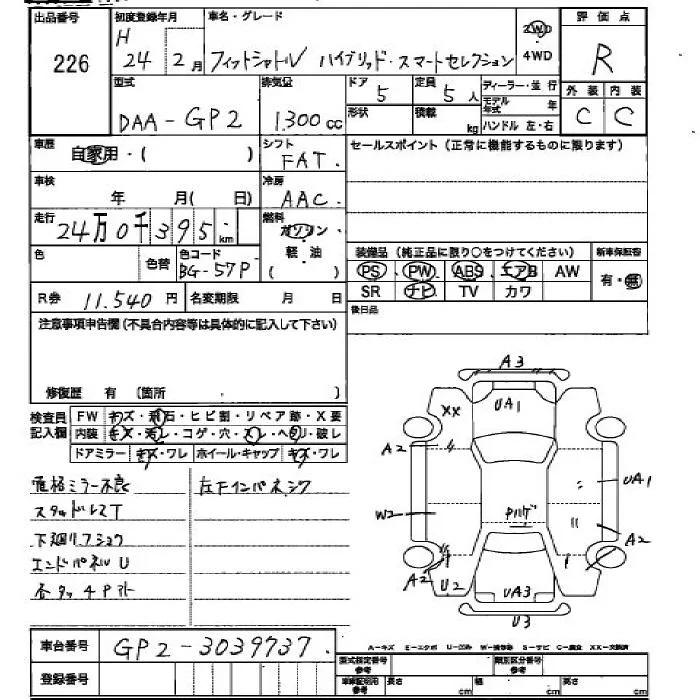 出品番号 初度登録年月 車名・グレード 2WD 評価点
226 H 24 2月 フィットシャトル ハイブリッド・スマートセレクション 4WD R
型式 排気量 ドア 定員 ディーラー・並行 外装 内装
DAA-GP2 1.300cc 5 5人 モデル年式 年 C C
形状 積載 kg ハンドル 左・右
車歴 自家用・( ) シフト FAT. セールスポイント(正常に機能するものに限ります)
車検 年 月(日) 冷房 AAC.
走行 24万0千395km 燃料 ガソリン・軽油 ( )
色 色替 色コード BG-57P 装備品(純正品に限り○をつけてください) 新車保証書
PS PW ABS エアB AW 有・無
R券 11.540円 名変期限 月 日 SR ナビ TV カワ
注意事項申告欄(不具合内容等は具体的に記入して下さい) 後日品
修復歴 有 (箇所 )
検査員記入欄 FW キズ・飛石・ヒビ割・リペア跡・X要
内装 キズ・汚レ・コゲ・穴・スレ・ヘタリ・破レ
ドアミラー キズ・ワレ ホイール・キャップ キズ・ワレ
A3
XX UA1
A2
UA1
W2
A2
A2 U2 UA3
U3
格ミラー不良 左Fインパネシワ
スタッドレスT
下廻リフショク
エンドパネルU
A-キズ E-エクボ U-凹み S-サビ C-腐食 XX-交換済
車台番号 GP2-3039737.
登録番号
型式指定番号 参考 類別区分番号 参考
車庫証明用 参考 長さ cm 幅 cm 高さ cm